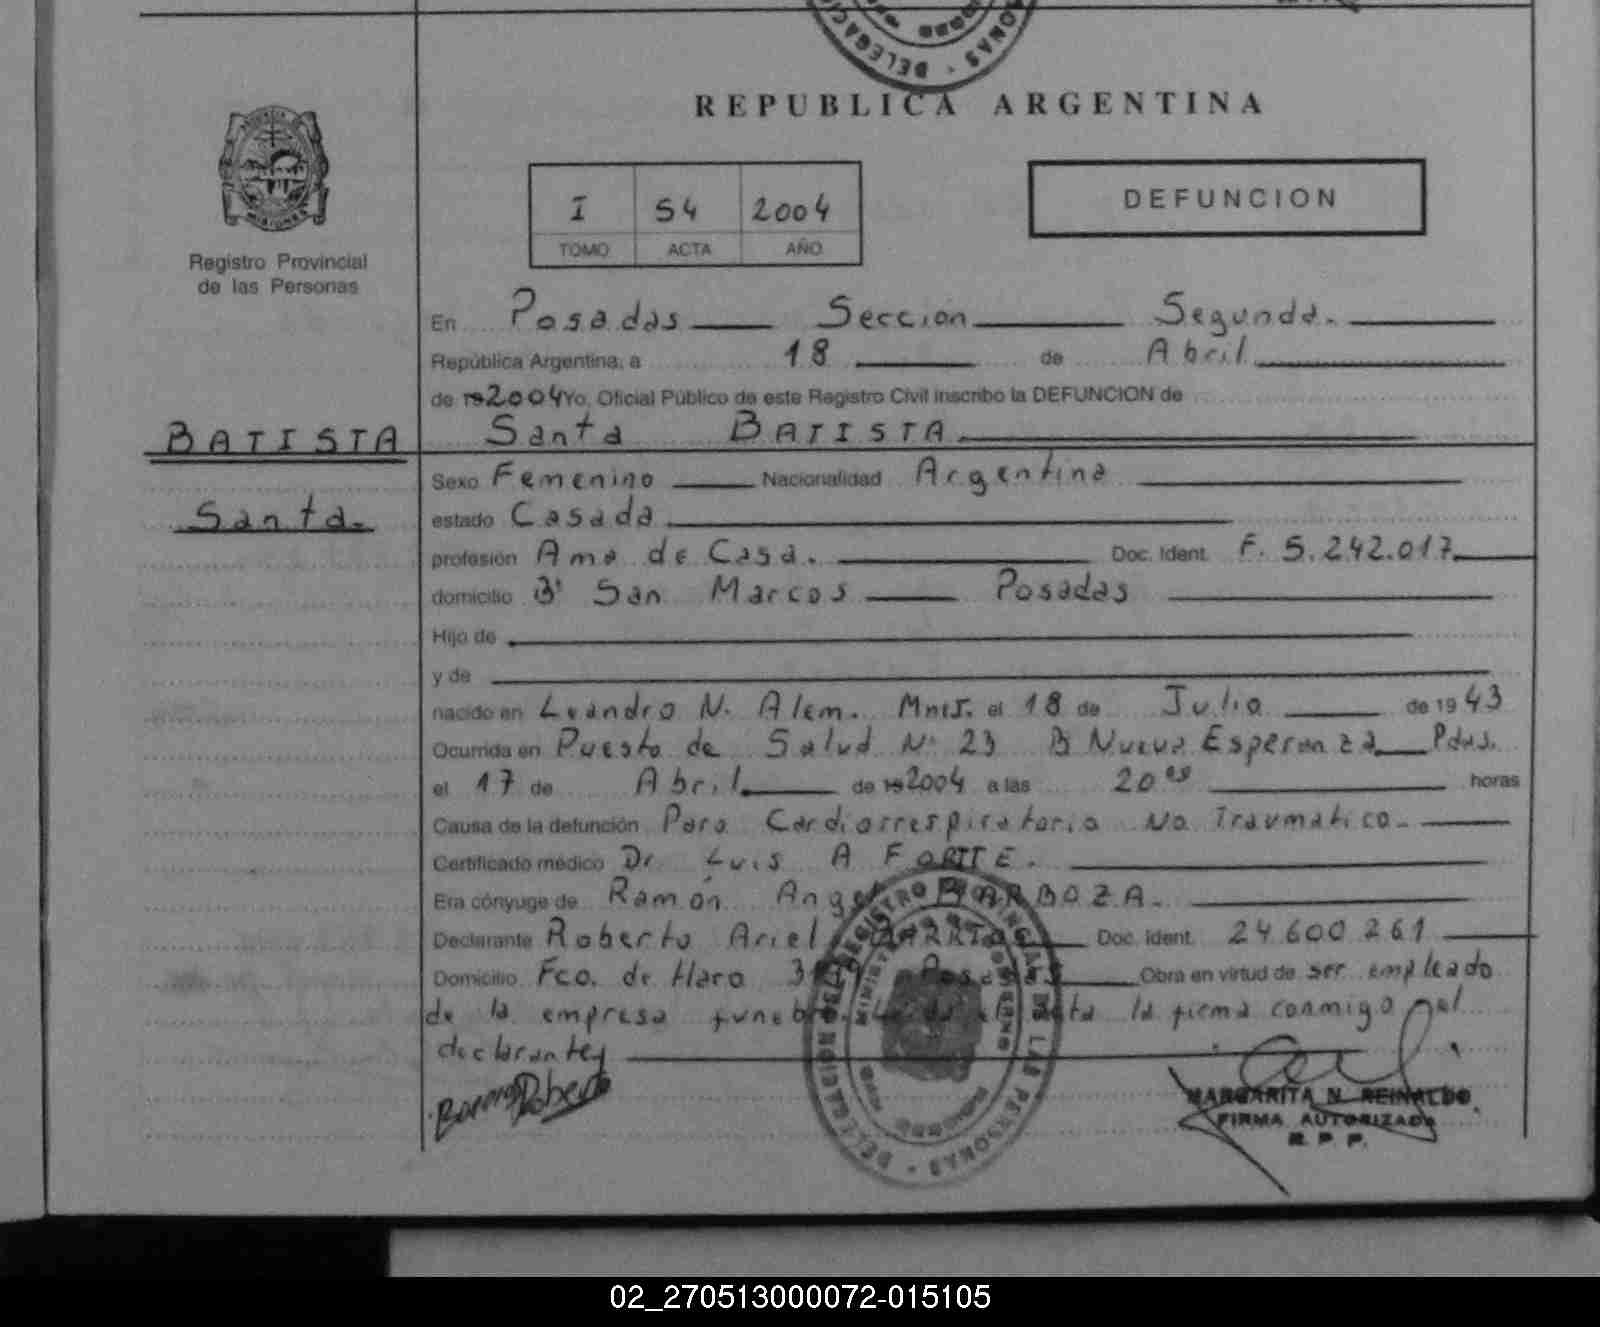 REPUBLICA ARGENTINA
I 54 2004
TOMO ACTA AÑO
DEFUNCION
Registro Provincial
de las Personas
En Posadas Sección Segunda.
República Argentina, a 18 de Abril
de 19 2004 Yo, Oficial Público de este Registro Civil inscribo la DEFUNCION de
BATISTA
Santa BATISTA.
Santa.
Sexo Femenino Nacionalidad Argentina
estado Casada
profesión Ama de Casa. Doc. Ident. F. 5.242.017
domicilio Bº San Marcos Posadas
Hijo de
y de
nacido en Leandro N. Alem. Mnes. el 18 de Julio de 19 43
Ocurrida en Puesto de Salud Nº 23 B Nueva Esperanza Pdas.
el 17 de Abril de 19 2004 a las 20 horas
Causa de la defunción Paro Cardiorrespiratorio No Traumatico.
Certificado médico Dr Luis A FORTTE.
Era cónyuge de Ramón Angel BARBOZA.
Declarante Roberto Ariel Doc. Ident. 24.600.261
Domicilio Fco. de Haro Posadas Obra en virtud de ser empleado
de la empresa la firma conmigo el
declarante
MARGARITA N. REINALDO
FIRMA AUTORIZADA
R. P. P.
REGISTRO PROVINCIAL DE LAS PERSONAS
02_270513000072-015105